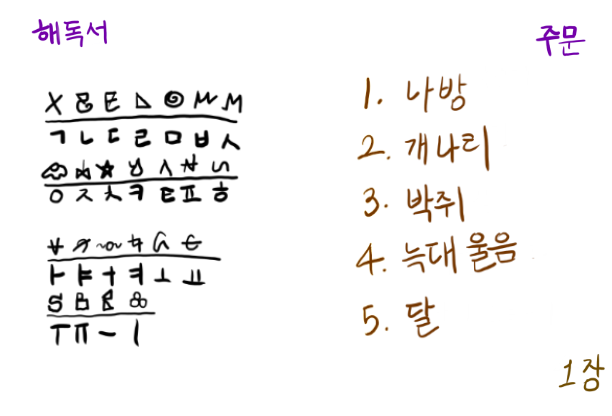 해독서
주문
ㄱㄴㄷㄹㅁㅂㅅ
ㅇㅈㅊㅋㅌㅍㅎ
ㅏㅑㅓㅕㅗㅛ
ㅜㅠㅡㅣ
1. 나방
2. 개나리
3. 박쥐
4. 늑대 울음
5. 달
1장